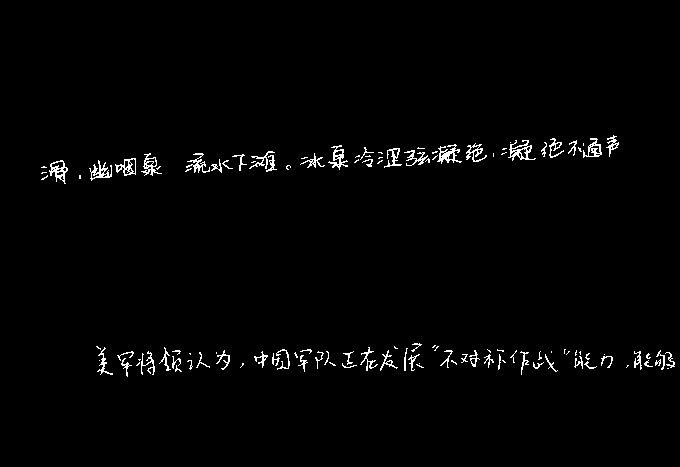 滑，幽咽泉 流水下滩。冰泉冷涩弦凝绝，凝绝不通声
美军将领认为，中国军队正在发展“不对称作战”能力，能够